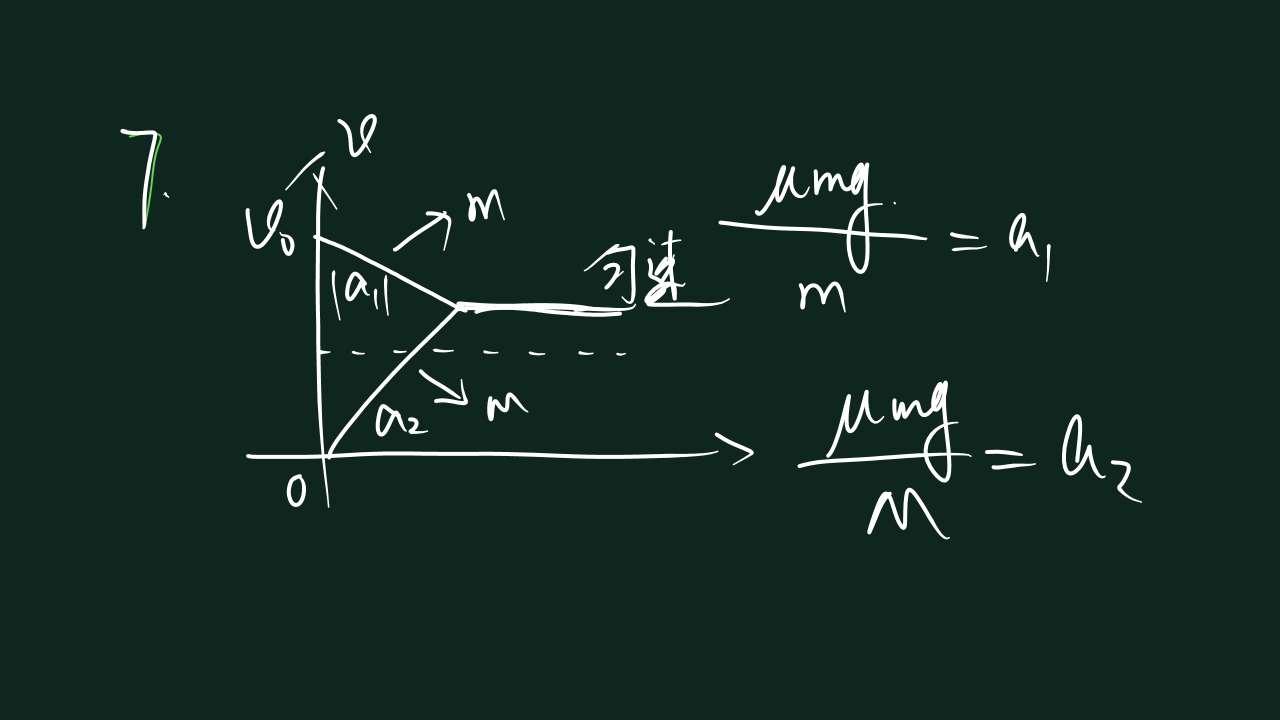 7.
v
v₀
m
|a₁|
匀速
a₂
m
0
μmg/m = a₁
μmg/M = a₂